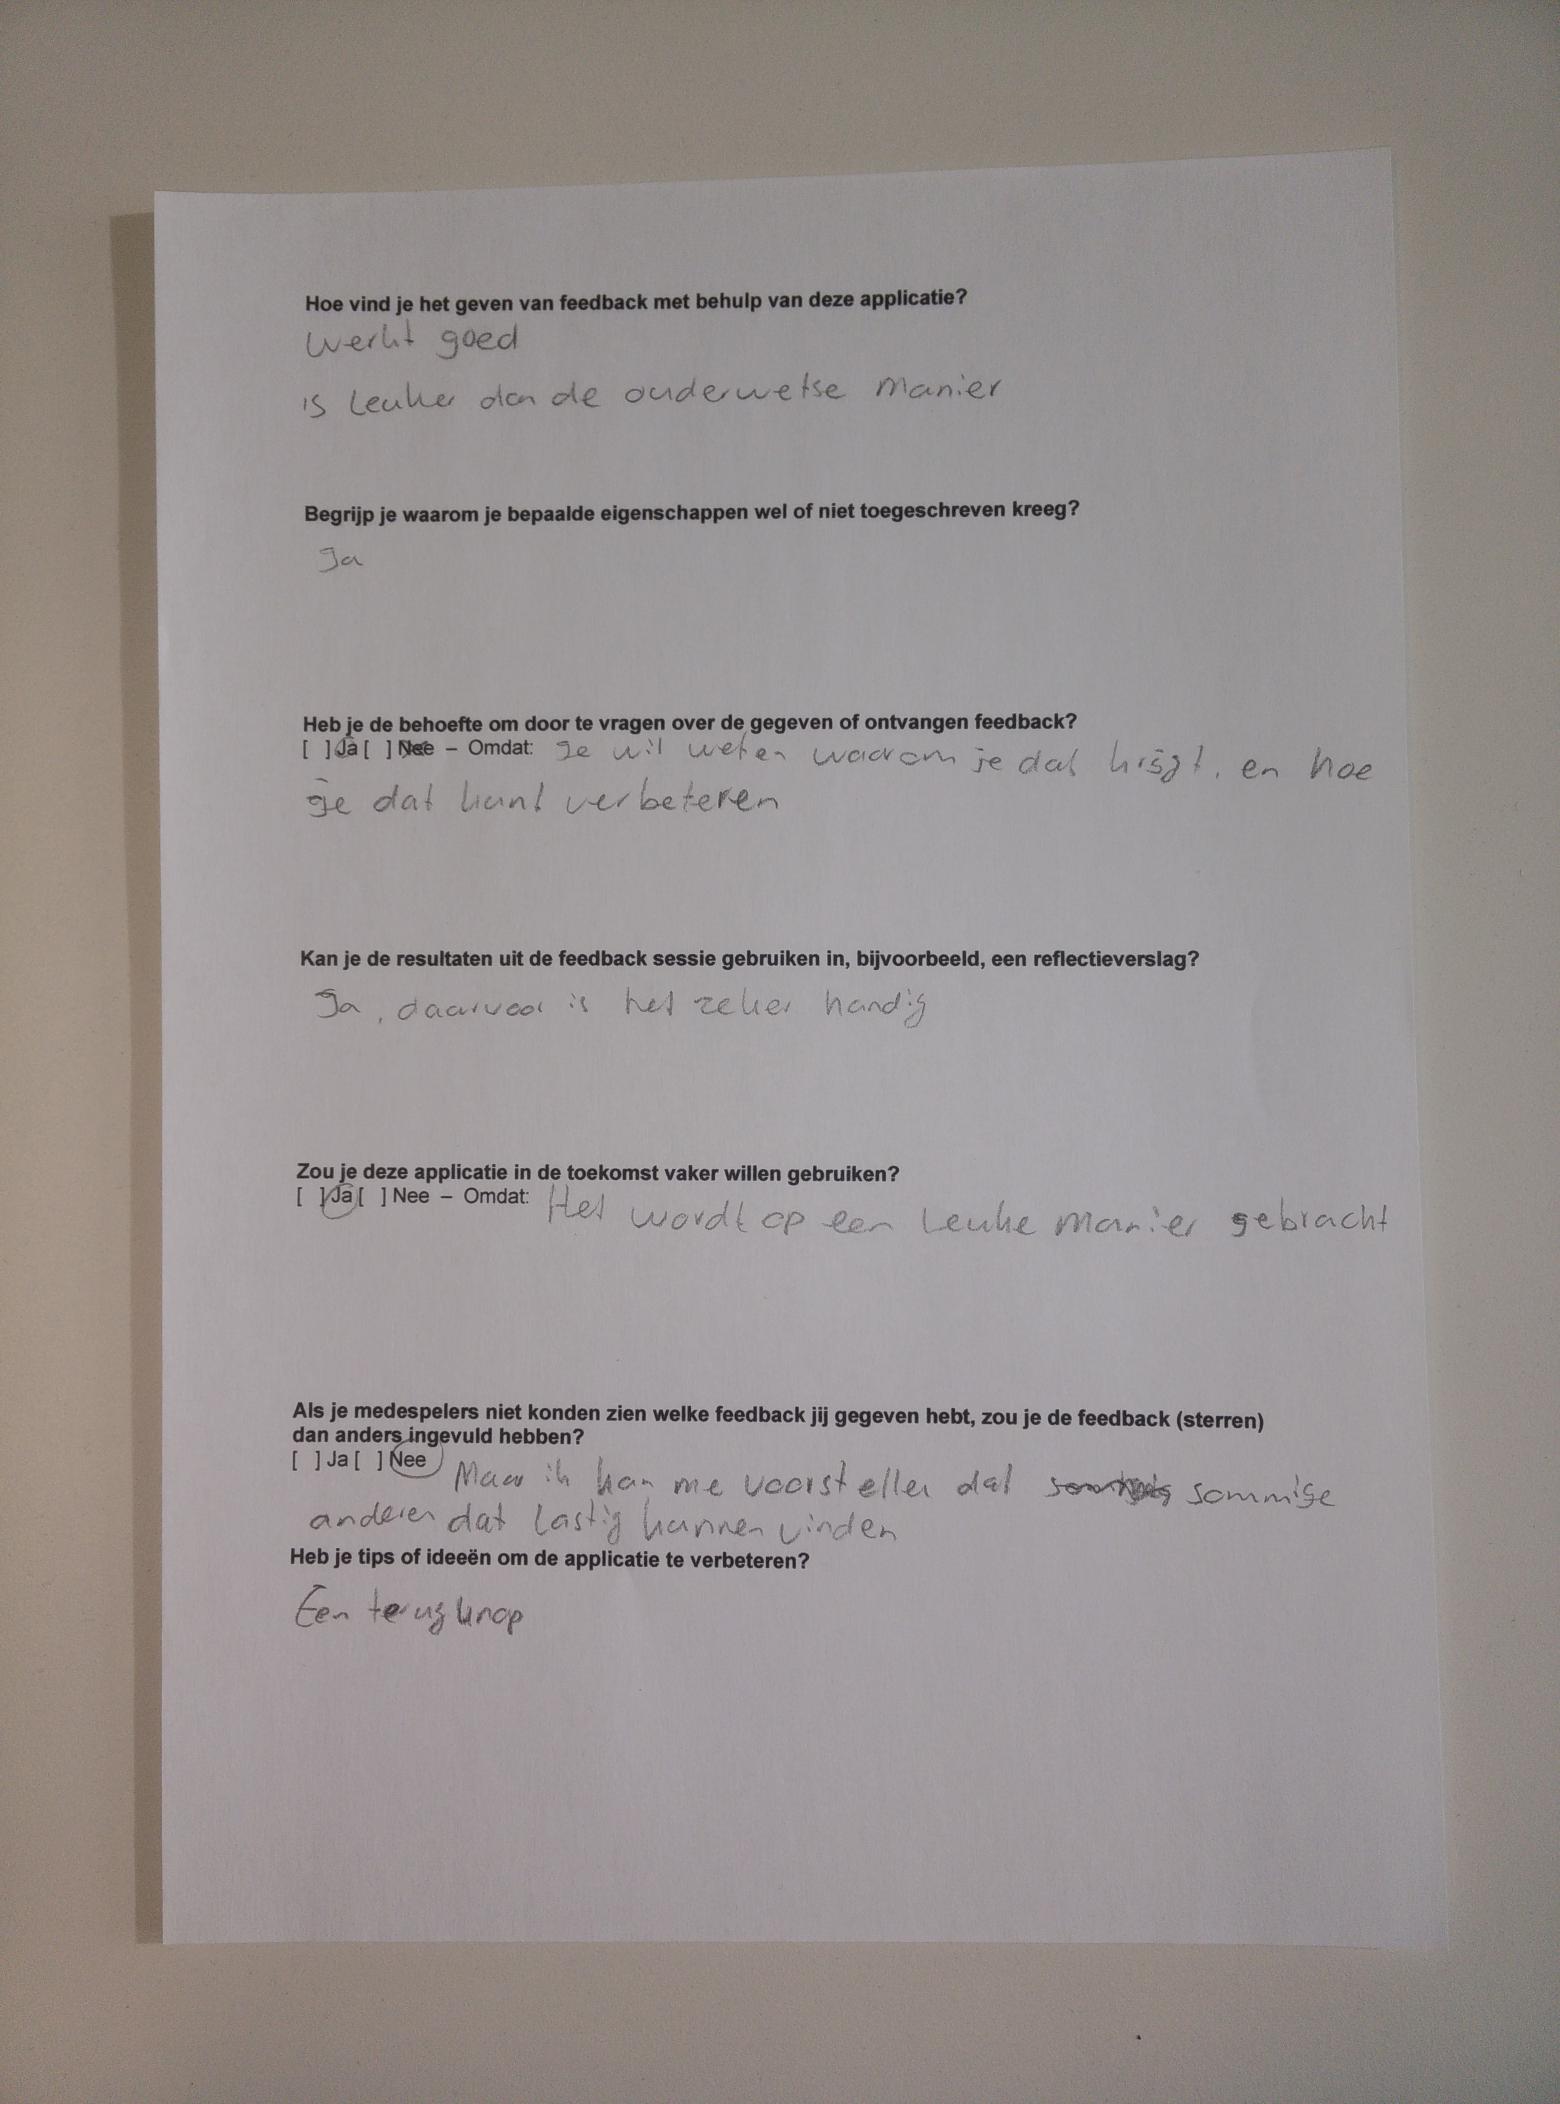 Hoe vind je het geven van feedback met behulp van deze applicatie?
werkt goed
is leuker dan de ouderwetse manier
Begrijp je waarom je bepaalde eigenschappen wel of niet toegeschreven kreeg?
Ja
Heb je de behoefte om door te vragen over de gegeven of ontvangen feedback?
[ ] Ja [ ] Nee – Omdat: Je wil weten waarom je dat krijgt, en hoe
je dat kunt verbeteren
Kan je de resultaten uit de feedback sessie gebruiken in, bijvoorbeeld, een reflectieverslag?
Ja, daarvoor is het zeker handig
Zou je deze applicatie in de toekomst vaker willen gebruiken?
[ ] Ja [ ] Nee – Omdat: Het wordt op een leuke manier gebracht
Als je medespelers niet konden zien welke feedback jij gegeven hebt, zou je de feedback (sterren)
dan anders ingevuld hebben?
[ ] Ja [ ] Nee Maar ik kan me voorstellen dat sommige
anderen dat lastig kunnen vinden
Heb je tips of ideeën om de applicatie te verbeteren?
Een terug knop